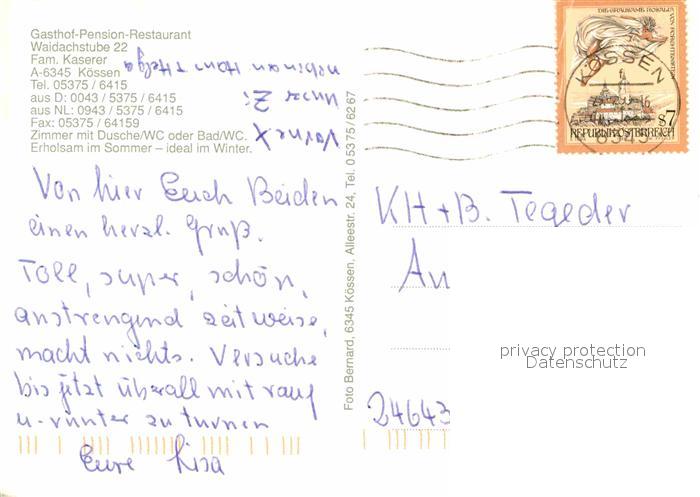 Gasthof-Pension-Restaurant
Waidachstube 22
Fam. Kaserer
A-6345 Kössen
Tel. 05375 / 6415
aus D: 0043 / 5375 / 6415
aus NL: 0943 / 5375 / 6415
Fax: 05375 / 64159
Zimmer mit Dusche/WC oder Bad/WC.
Erholsam im Sommer – ideal im Winter.
vorne X
Unser Zi.
nebenan Hans + Helga
Von hier Euch Beiden
einen herzl. Gruß.
Toll, super, schön,
anstrengend zeitweise,
macht nichts. Versuche
bis jetzt überall mit rauf
u. runter zu turnen
Eure Lisa
Foto Bernard, 6345 Kössen, Alleestr. 24, Tel. 0 53 75 / 62 67
KÖSSEN
6345
DIE GRAUSAME ROSALIA
VON FORCHTENSTEIN
s7
REPUBLIK ÖSTERREICH
KH + B. Tegeder
An
24643
privacy protection
Datenschutz